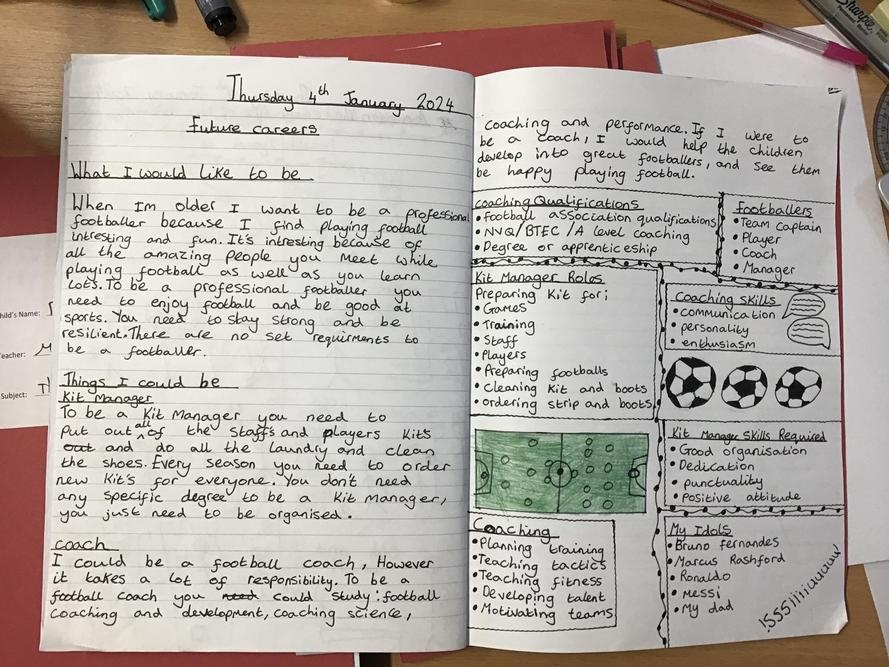 Sharpie
Thursday 4th January 2024
Future careers
What I would like to be
When Im older I want to be a professional
footballer because I find playing football
intresting and fun. It's intresting because of
all the amazing people you Meet while
playing football as well as you learn
lots. To be a professional footballer you
need to enjoy football and be good at
sports. You need to stay strong and be
resilient. There are no set requirments to
be a footballer.
Things I could be
Kit Manager
To be a Kit Manager you need to
put out all of the staffs and players kits
out and do all the laundry and clean
the shoes. Every season you need to order
new Kit's for everyone. You don't need
any specific degree to be a Kit Manager,
you just need to be organised.
coach
I could be a football coach, However
it takes a lot of responsibility. To be a
football coach you need could study: football
coaching and development, coaching science,
coaching and performance. If I were to
be a coach, I would help the children
develop into great footballers, and see them
be happy playing football.
coaching Qualifications
• football association qualifications
• NVQ/BTEC /A level coaching
• Degree or apprenticeship
Footballers
• Team captain
• Player
• Coach
• Manager
Kit Manager Roles
Preparing Kit for:
• Games
• Training
• Staff
• Players
• Preparing footballs
• Cleaning Kit and boots
• ordering strip and boots
Coaching Skills
• communication
• personality
• enthusiasm
Kit Manager Skills Required
• Good organisation
• Dedication
• punctuality
• Positive attitude
Coaching
• Planning training
• Teaching tactics
• Teaching fitness
• Developing talent
• Motivating teams
My Idols
• Bruno fernandes
• Marcus Rashford
• Ronaldo
• Messi
• My dad
hild's Name:
Teacher: M
Subject: